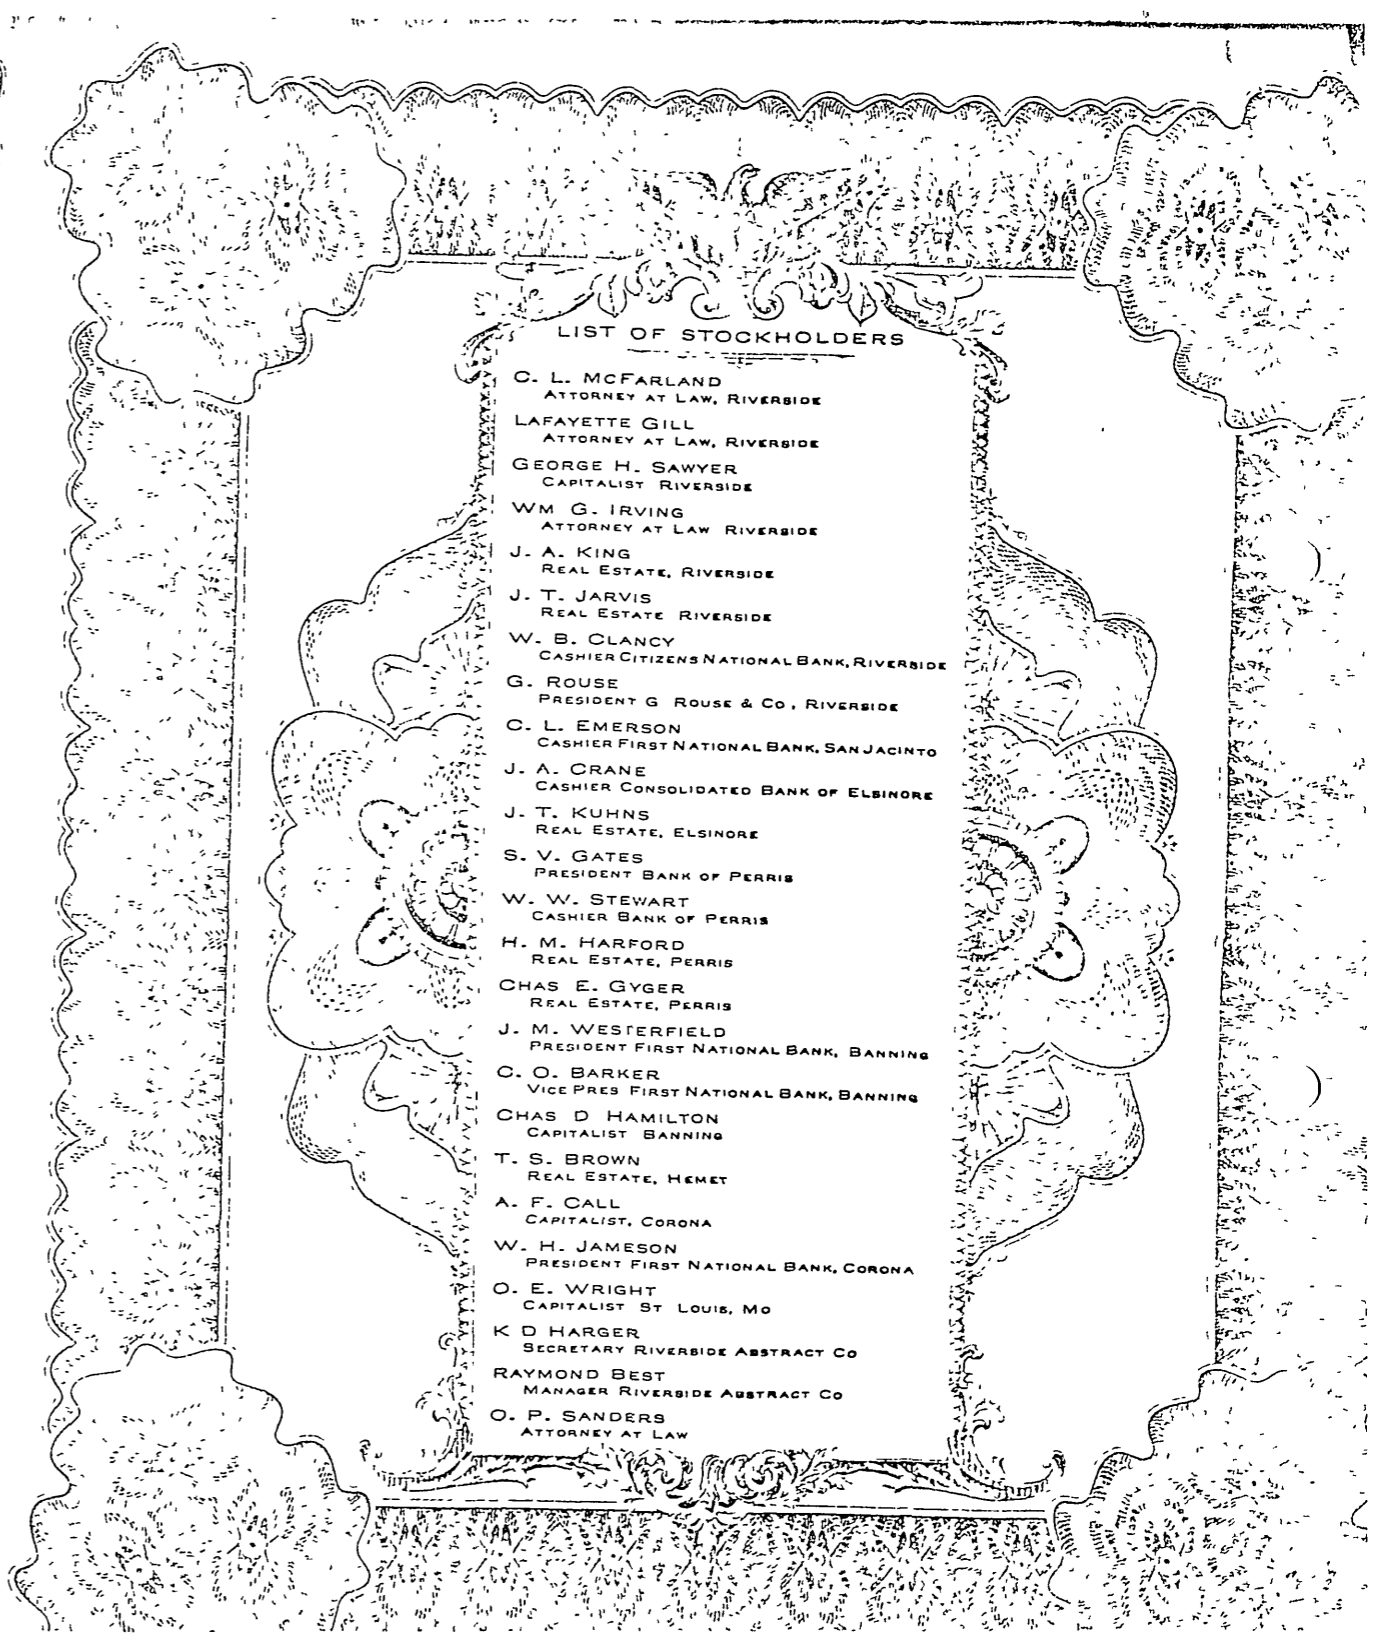 LIST OF STOCKHOLDERS
C. L. MCFARLAND
ATTORNEY AT LAW, RIVERSIDE
LAFAYETTE GILL
ATTORNEY AT LAW, RIVERSIDE
GEORGE H. SAWYER
CAPITALIST RIVERSIDE
WM G. IRVING
ATTORNEY AT LAW RIVERSIDE
J. A. KING
REAL ESTATE, RIVERSIDE
J. T. JARVIS
REAL ESTATE RIVERSIDE
W. B. CLANCY
CASHIER CITIZENS NATIONAL BANK, RIVERSIDE
G. ROUSE
PRESIDENT G ROUSE & CO, RIVERSIDE
C. L. EMERSON
CASHIER FIRST NATIONAL BANK, SAN JACINTO
J. A. CRANE
CASHIER CONSOLIDATED BANK OF ELSINORE
J. T. KUHNS
REAL ESTATE, ELSINORE
S. V. GATES
PRESIDENT BANK OF PERRIS
W. W. STEWART
CASHIER BANK OF PERRIS
H. M. HARFORD
REAL ESTATE, PERRIS
CHAS E. GYGER
REAL ESTATE, PERRIS
J. M. WESTERFIELD
PRESIDENT FIRST NATIONAL BANK, BANNING
C. O. BARKER
VICE PRES FIRST NATIONAL BANK, BANNING
CHAS D HAMILTON
CAPITALIST BANNING
T. S. BROWN
REAL ESTATE, HEMET
A. F. CALL
CAPITALIST, CORONA
W. H. JAMESON
PRESIDENT FIRST NATIONAL BANK, CORONA
O. E. WRIGHT
CAPITALIST ST LOUIS, MO
K D HARGER
SECRETARY RIVERSIDE ABSTRACT CO
RAYMOND BEST
MANAGER RIVERSIDE ABSTRACT CO
O. P. SANDERS
ATTORNEY AT LAW